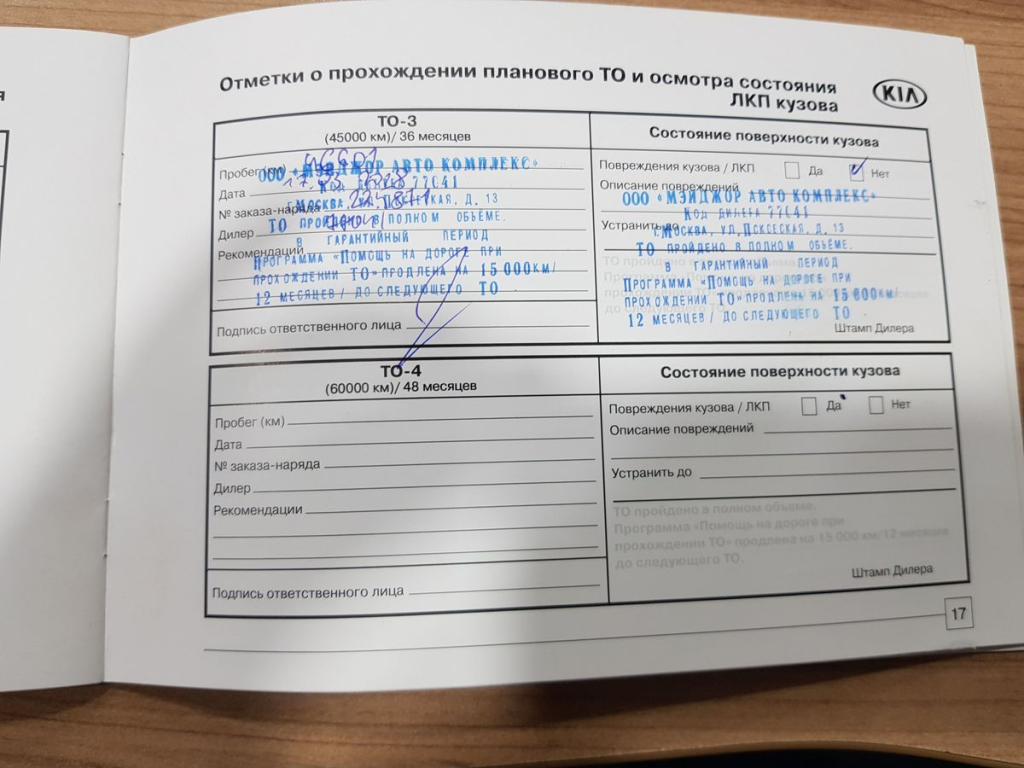 Отметки о прохождении планового ТО и осмотра состояния
ЛКП кузова
KIA
ТО-3
(45000 км)/ 36 месяцев
Пробег (км) 46601
ООО «МЭЙДЖОР АВТО КОМПЛЕКС»
Дата
Код дилера 77С41
№ заказа-наряда
г.Москва, ул, Псковская, д. 13
Дилер
ТО пройдено в полном объёме.
Рекомендации
в гарантийный период
Программа «Помощь на дороге при
прохождении ТО» продлена на 15000км/
12 месяцев/ до следующего ТО
Подпись ответственного лица
Состояние поверхности кузова
Повреждения кузова / ЛКП Да Нет
Описание повреждений
ООО «МЭЙДЖОР АВТО КОМПЛЕКС»
Код дилера 77С41
Устранить до
г.Москва, ул,Псковская, д. 13
ТО пройдено в полном объёме.
в гарантийный период
Программа «Помощь на дороге при
прохождении ТО» продлена на 15000км/
12 месяцев/ до следующего ТО
Штамп Дилера
ТО-4
(60000 км)/ 48 месяцев
Пробег (км)
Дата
№ заказа-наряда
Дилер
Рекомендации
Подпись ответственного лица
Состояние поверхности кузова
Повреждения кузова / ЛКП Да Нет
Описание повреждений
Устранить до
ТО пройдено в полном объеме.
Программа «Помощь на дороге при
прохождении ТО» продлена на 15 000 км/12 месяцев
до следующего ТО.
Штамп Дилера
17